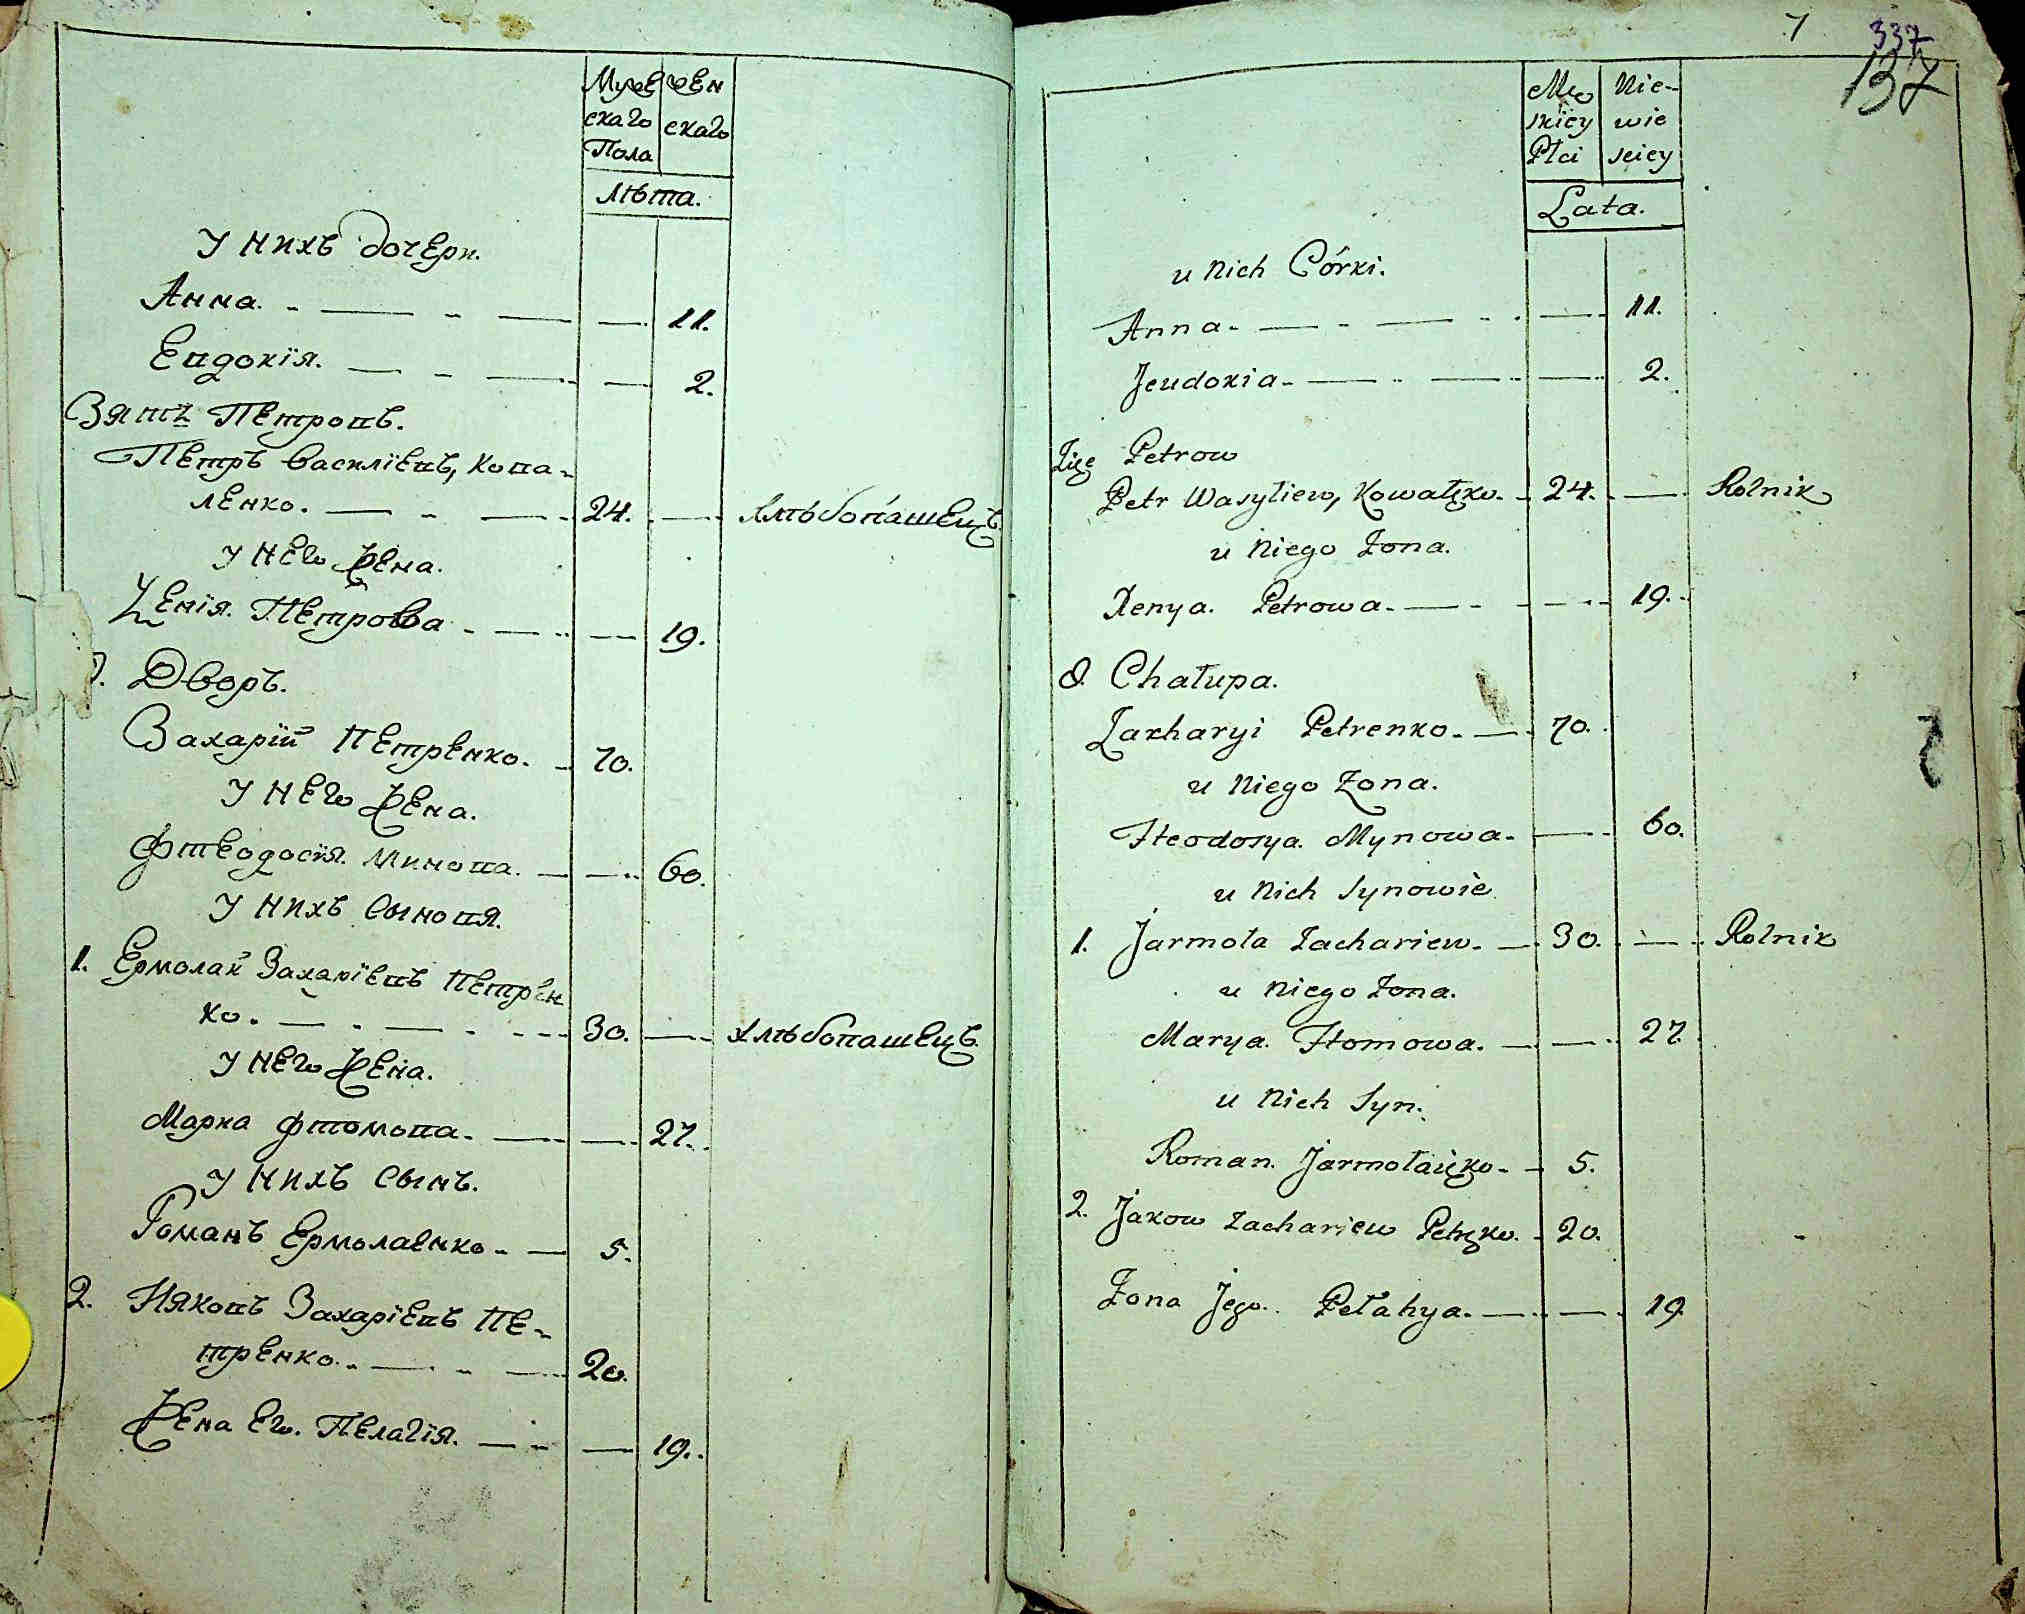 Муже
скаго
Пола
жен
скаго
Лѣта.
У нихъ дочери.
Анна. 11.
Евдокія. 2.
Зять Петровъ.
Петръ Василіевъ, Кова-
ленко. 24. хлѣбопашецъ.
У него жена.
Ѯенія. Петрова 19.
Дворъ.
Захарій Петренко. 70.
У него жена.
Фтеодосія. Минова. 60.
У нихъ сыновя.
1. Ермолай Захаріевъ Петрен
ко. 30. хлѣбопашецъ.
У него жена.
Мариа Фтомова. 27.
У нихъ сынъ.
Романъ Ермолаенко 5.
2.Ияковъ Захаріевъ Пе-
тренко. 20.
Жена его. Пелагія. 19.
7
337
137
Mę
skiey
Płci
Nie-
wie
sciey
Lata.
u Nich Córki.
Anna 11.
Jeudokia 2.
Zięć Petrow
Petr Wasyliew, Kowałęko. 24. Rolnik
u Niego Zona.
Xenya. Petrowa. 19.
8. Chałupa.
Zacharyi Petrenko. 70.
u Niego Zona.
Fteodosya. Mynowa. 60.
u Nich Synowie
1. Jarmoła Zachariew. 30. Rolnik
u Niego Zona.
Marya. Ftomowa. 27.
u Nich Syn.
Roman. Jarmołaięko 5.
2. Jakow Zachariew Petręko. 20.
Zona Jego. Pełahya. 19